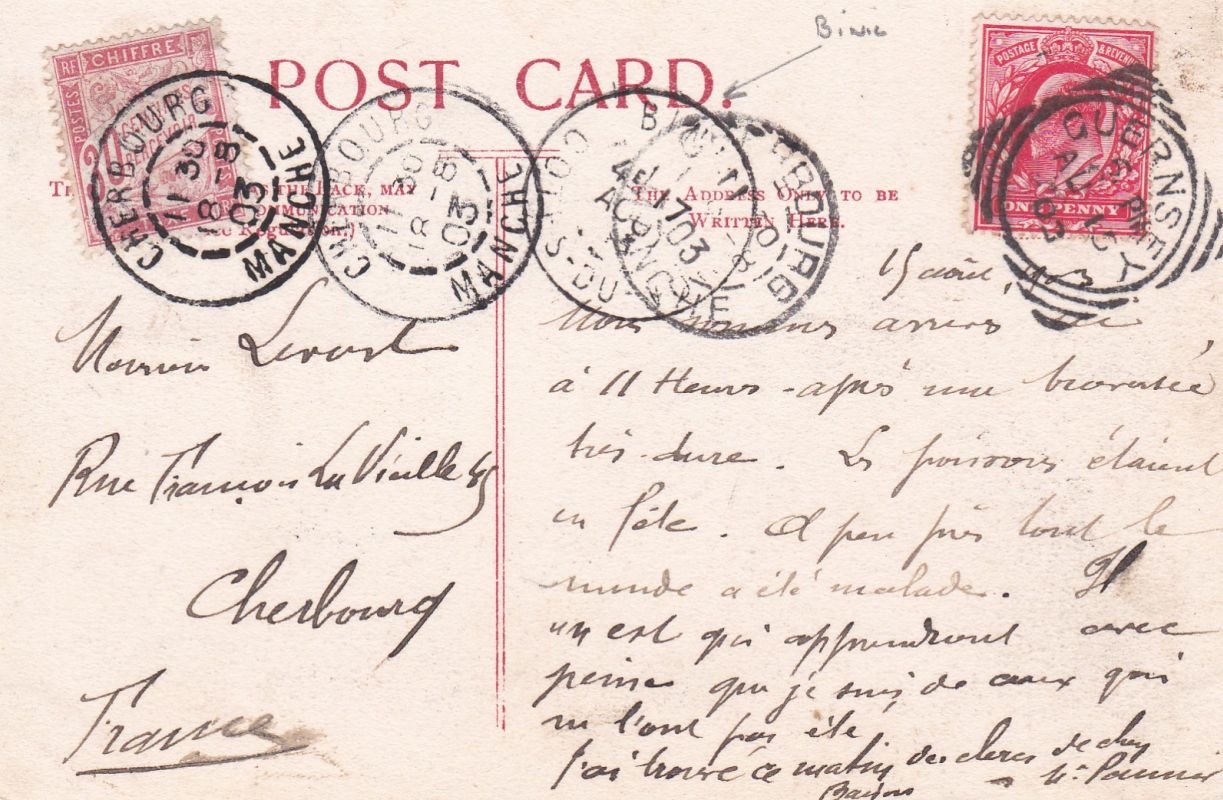 Binic
POST CARD.
RF CHIFFRE
POSTES
CENTIMES
CHERBOURG
11 30
18-8
03
MANCHE
CHERBOURG
11 30
18-8
03
MANCHE
BINIC
17
AOUT
03
COTES-DU-NORD
CHERBOURG
POSTAGE & REVENUE
ONE PENNY
GUERNSEY
AU 15
03
THIS THE BACK, MAY
COMMUNICATION
(See Regulations.)
THE ADDRESS ONLY TO BE
WRITTEN HERE.
15 août 1903
Nous sommes arrivés ici
à 11 Heures - après une traversée
très-dure. Les poissons étaient
en fête. A peu près tout le
monde a été malade. Il
en est qui apprendront avec
peine que je suis de ceux qui
ne l'ont pas été.
J'ai trouvé ce matin des de chez
Mr
Monsieur
Rue François La Vieille 45
Cherbourg
France